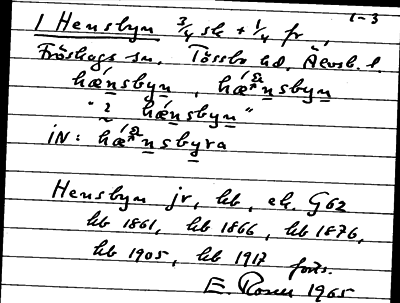 1-3
1 Hensbyn 3/4 sk + 1/4 fr,
Fröskogs sn, Tössbo hd, Älvsb. l.
hǽnsbyn, hǽnsbyn
"2 hǽnsbyn"
iN: hǽnsbyra
Hensbyn jr, kb, ek. G62
kb 1861, kb 1866, kb 1876,
kb 1905, kb 1917 forts.
E. 1965